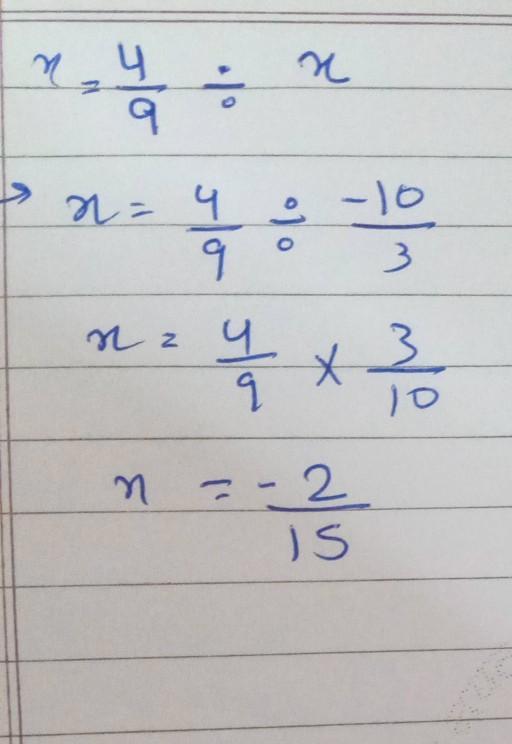 x = 4/9 ÷ x
→ x = 4/9 ÷ -10/3
x = 4/9 × 3/10
x = -2/15